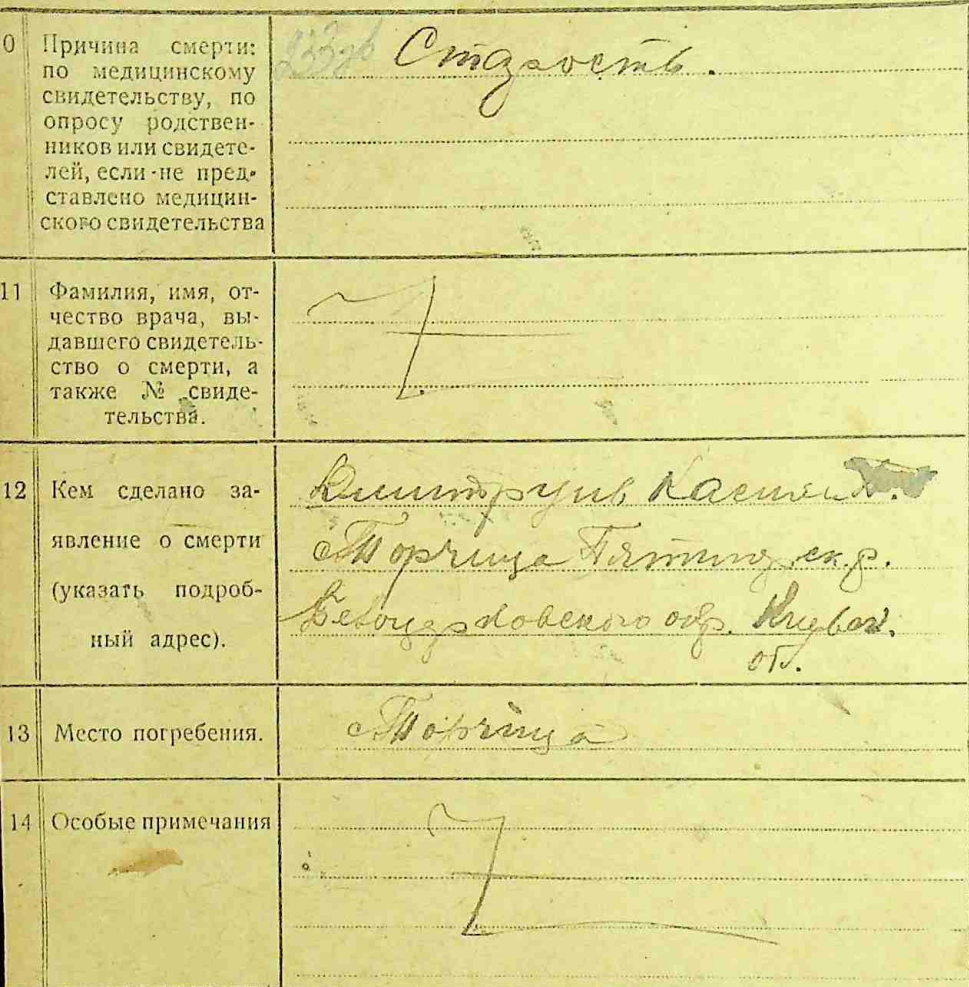 0 Причина смерти:
по медицинскому
свидетельству, по
опросу родствен-
ников или свидете-
лей, если не пред-
ставлено медицин-
ского свидетельства
Старость.
11 Фамилия, имя, от-
чество врача, вы-
давшего свидетель-
ство о смерти, а
также № свиде-
тельства.
12 Кем сделано за-
явление о смерти
(указать подроб-
ный адрес).
с Торчица
Киевск.
об.
13 Место погребения.
с Торчица
14 Особые примечания